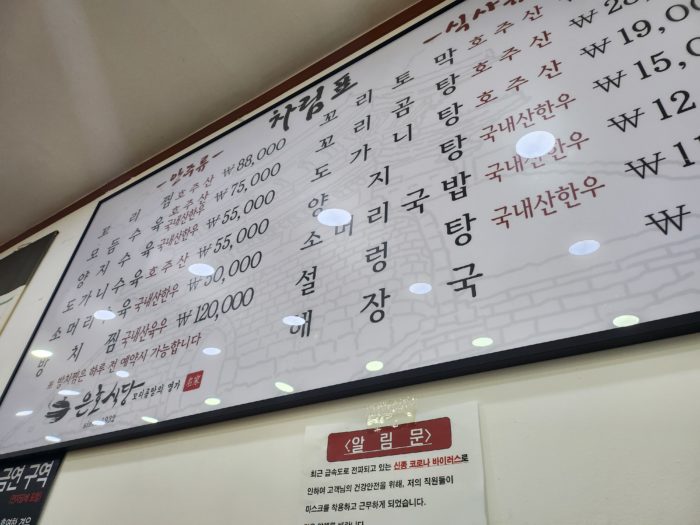 차림표
-안주류-
꼬리찜 호주산 ₩88,000
모듬수육 호주산 국내산한우 ₩75,000
양지수육 국내산한우 ₩55,000
도가니수육 호주산 ₩55,000
소머리수육 국내산한우 ₩50,000
방치찜 국내산육우 ₩120,000
※ 방치찜은 하루 전 예약시 가능합니다
은호식당 꼬리곰탕의 명가
since 1932
-식사
꼬리토막 호주산
꼬리곰탕 호주산 ₩19,000
도가니탕 호주산 ₩15,0
양지탕 국내산한우 ₩12
소머리국밥 국내산한우 ₩1
설렁탕 국내산한우 ₩
해장국
<알림문>
최근 급속도로 전파되고 있는 신종 코로나 바이러스로
인하여 고객님의 건강안전을 위해, 저의 직원들이
마스크를 착용하고 근무하게 되었습니다.
금연 구역